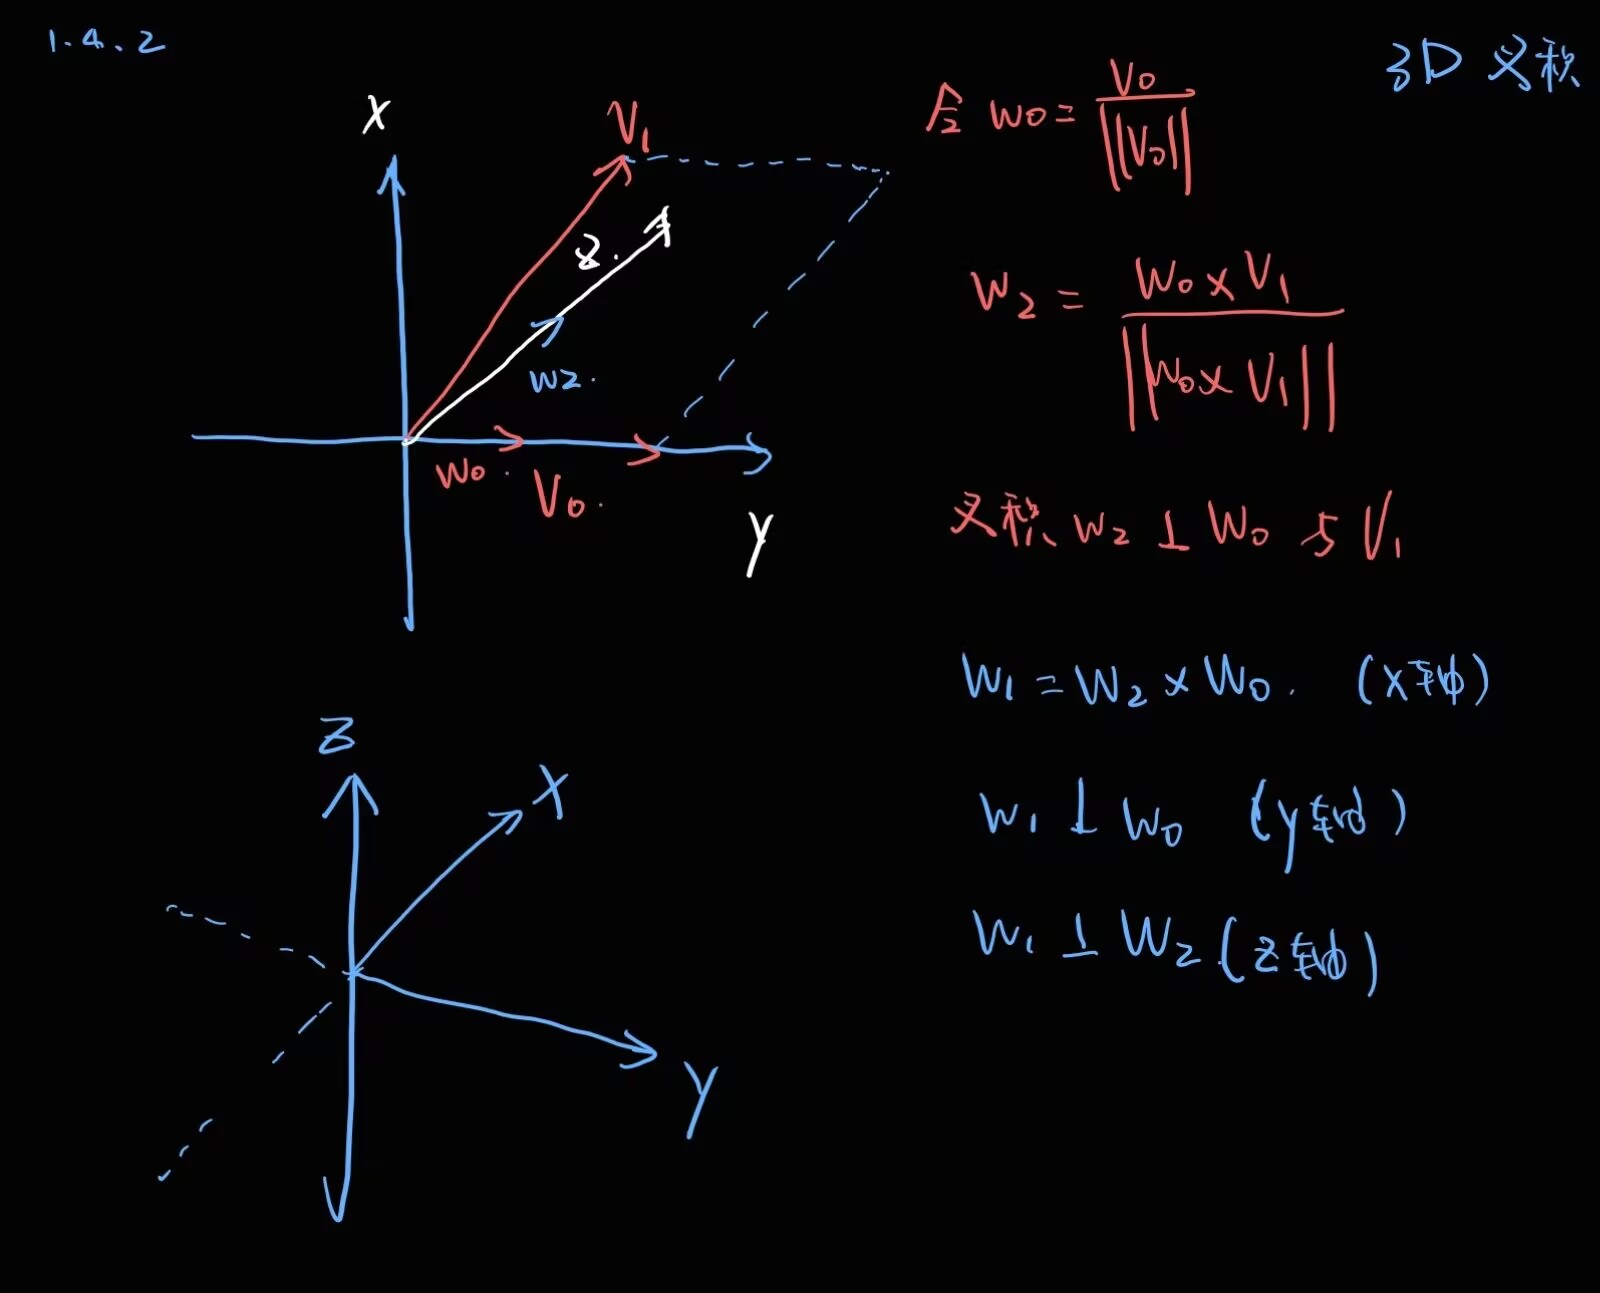 1.4.2
3D 叉积
X
V₁
Z.
W₂.
W₀.
V₀.
Y
令 W₀ = V₀ / ||V₀||
W₂ = W₀ × V₁ / ||W₀ × V₁||
叉积 W₂ ⊥ W₀ 与 V₁
W₁ = W₂ × W₀. (X轴)
W₁ ⊥ W₀ (y轴)
W₁ ⊥ W₂ (z轴)
Z
X
Y